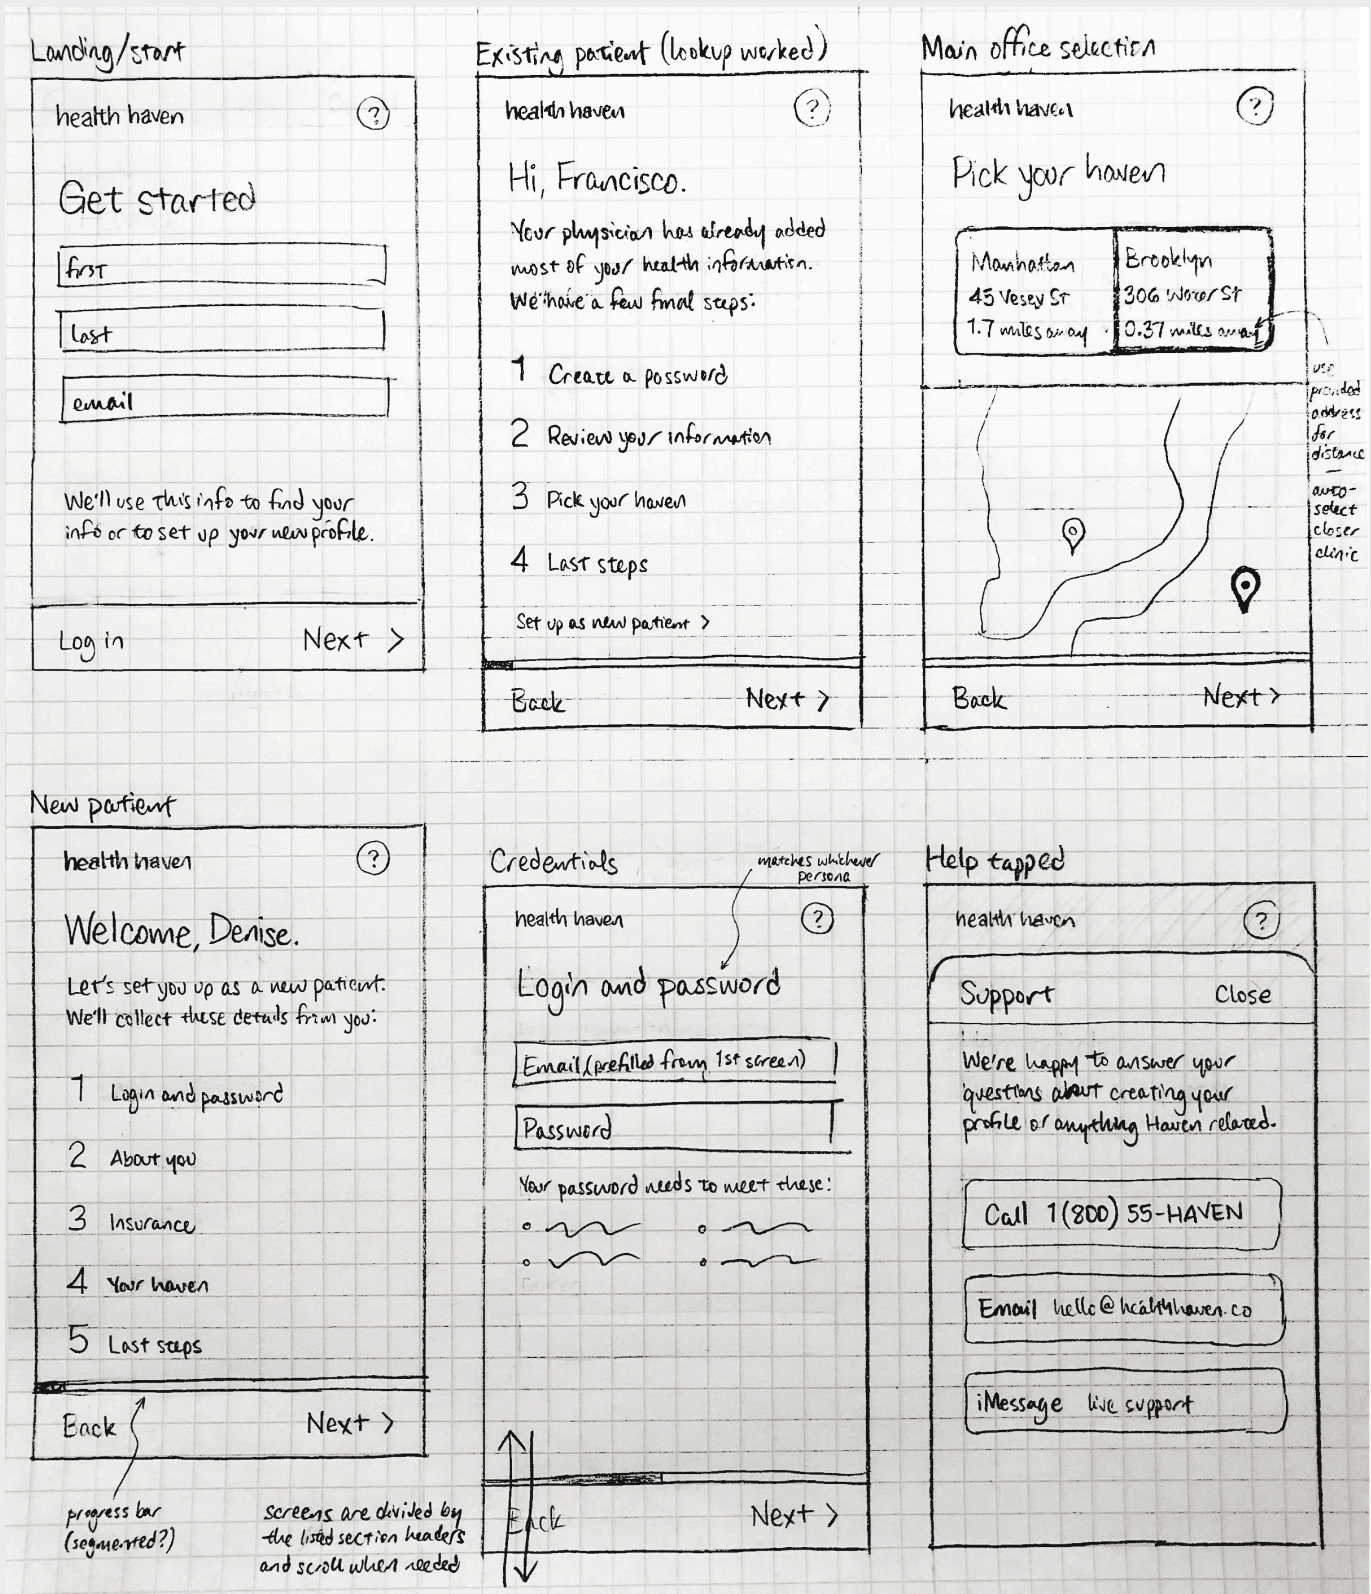 Landing/start
health haven
?
Get started
first
last
email
We'll use this info to find your
info or to set up your new profile.
Log in
Next >
Existing patient (lookup worked)
health haven
?
Hi, Francisco.
Your physician has already added
most of your health information.
We have a few final steps:
1 Create a password
2 Review your information
3 Pick your haven
4 Last steps
Set up as new patient >
Back
Next >
Main office selection
health haven
?
Pick your haven
Manhattan
45 Vesey St
1.7 miles away
Brooklyn
306 Water St
0.37 miles away
use
provided
address
for
distance
—
auto-
select
closer
clinic
Back
Next >
New patient
health haven
?
Welcome, Denise.
Let's set you up as a new patient.
We'll collect these details from you:
1 Login and password
2 About you
3 Insurance
4 Your haven
5 Last steps
Back
Next >
progress bar
(segmented?)
screens are divided by
the listed section headers
and scroll when needed
Credentials
matches whichever
persona
health haven
?
Login and password
Email (prefilled from 1st screen)
Password
Your password needs to meet these:
Back
Next >
Help tapped
health haven
?
Support
Close
We're happy to answer your
questions about creating your
profile or anything Haven related.
Call 1(800) 55-HAVEN
Email hello@healthhaven.co
iMessage live support